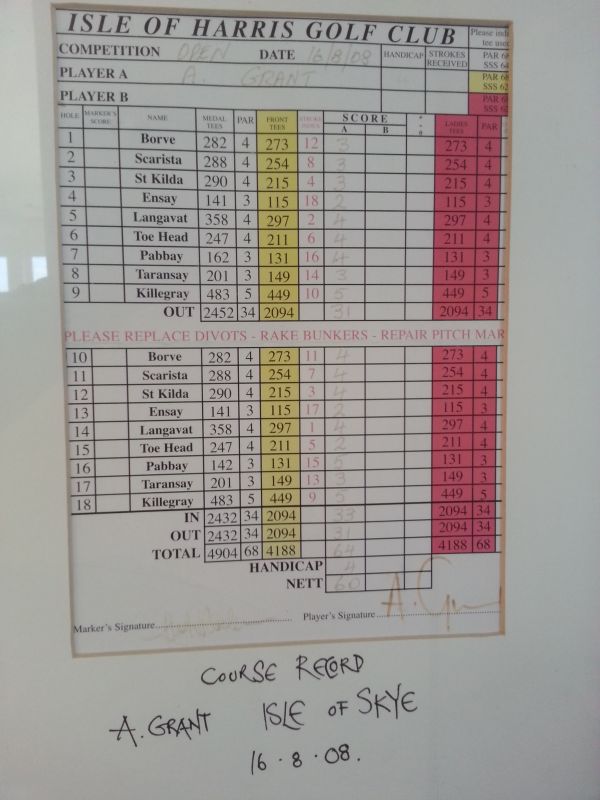 ISLE OF HARRIS GOLF CLUB
Please indi
tee used
COMPETITION OPEN DATE 16/8/08 HANDICAP STROKES RECEIVED
PAR 68
SSS 64
PLAYER A A. GRANT
PAR 68
SSS 62
PLAYER B
PAR 68
HOLE MARKER'S SCORE NAME MEDAL TEES PAR FRONT TEES STROKE INDEX SCORE A B LADIES TEES PAR
1 Borve 282 4 273 12 3 273 4
2 Scarista 288 4 254 8 3 254 4
3 St Kilda 290 4 215 4 3 215 4
4 Ensay 141 3 115 18 2 115 3
5 Langavat 358 4 297 2 4 297 4
6 Toe Head 247 4 211 6 4 211 4
7 Pabbay 162 3 131 16 4 131 3
8 Taransay 201 3 149 14 3 149 3
9 Killegray 483 5 449 10 5 449 5
OUT 2452 34 2094 31 2094 34
PLEASE REPLACE DIVOTS - RAKE BUNKERS - REPAIR PITCH MAR
10 Borve 282 4 273 11 4 273 4
11 Scarista 288 4 254 7 4 254 4
12 St Kilda 290 4 215 3 4 215 4
13 Ensay 141 3 115 17 2 115 3
14 Langavat 358 4 297 1 4 297 4
15 Toe Head 247 4 211 5 2 211 4
16 Pabbay 142 3 131 15 5 131 3
17 Taransay 201 3 149 13 3 149 3
18 Killegray 483 5 449 9 5 449 5
IN 2432 34 2094 33 2094 34
OUT 2432 34 2094 31 2094 34
TOTAL 4904 68 4188 64 4188 68
HANDICAP 4
NETT 60
Marker's Signature Player's Signature A. Grant
COURSE RECORD
A. GRANT ISLE OF SKYE
16 . 8 . 08.